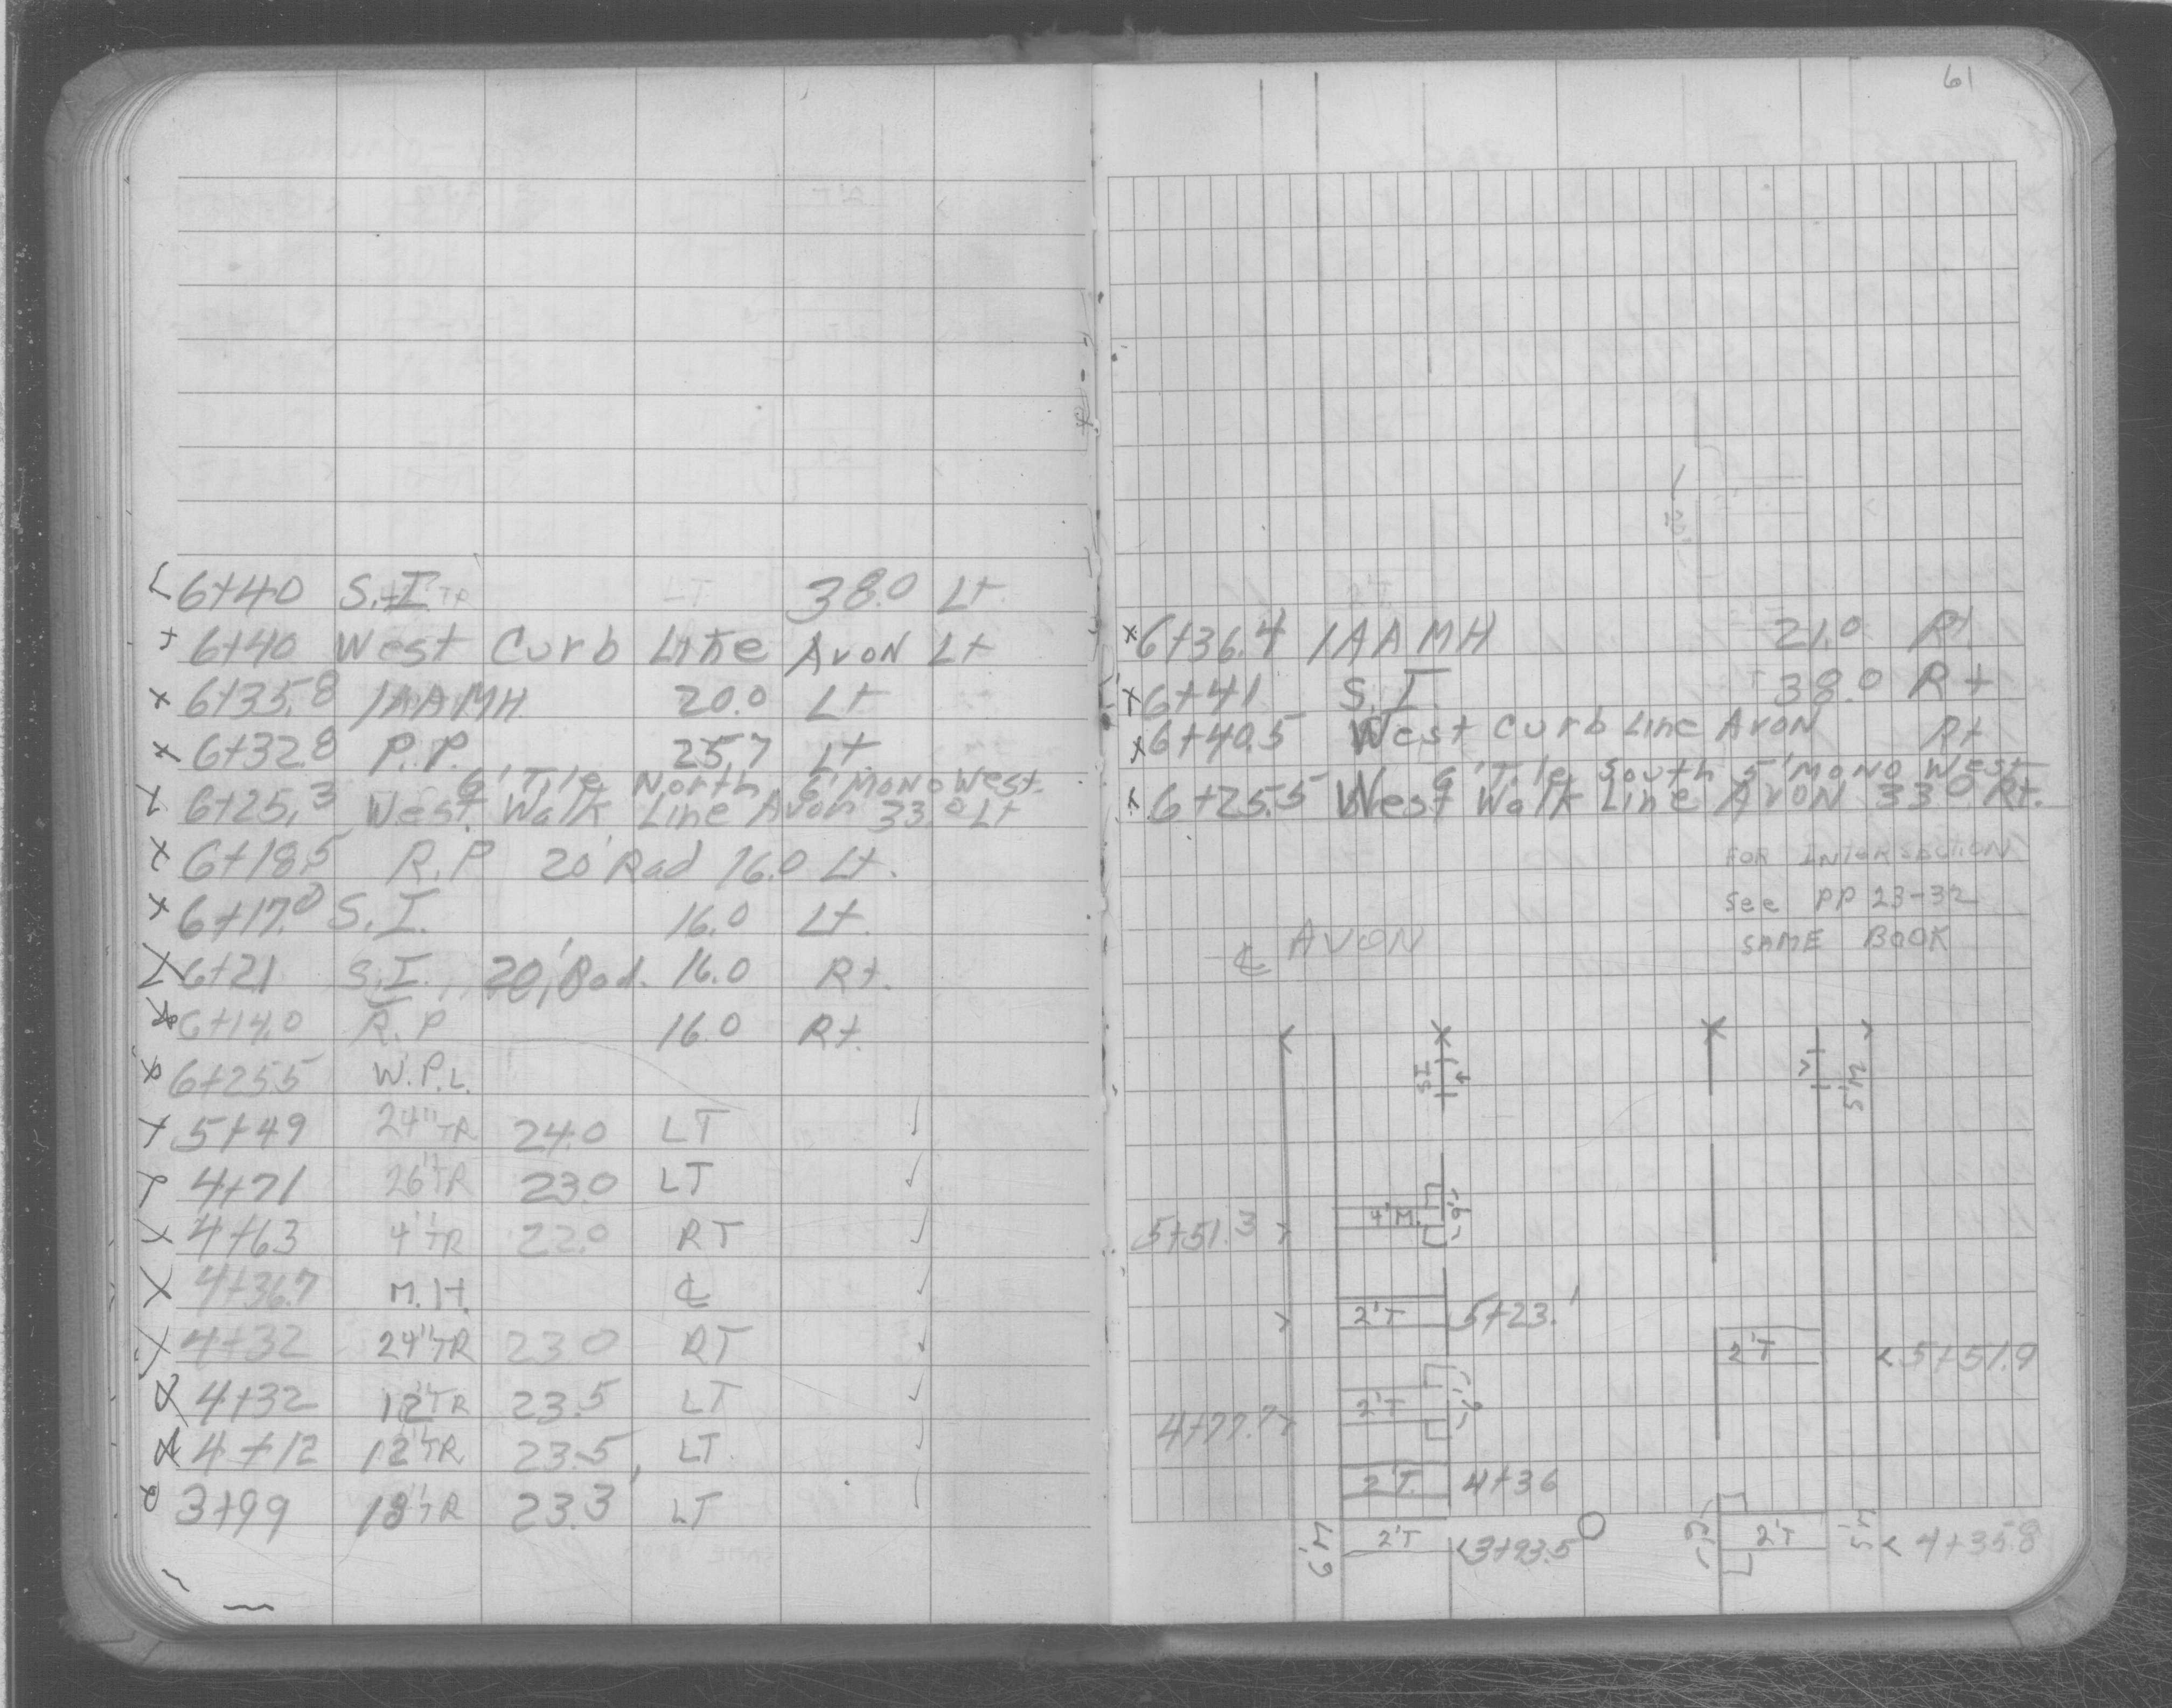 6+40 S.I. 38.0 Lt.
6+40 West Curb Line Avon Lt
6+35.8 1AAMH 20.0 Lt
6+32.8 P.P. 25.7 Lt.
6' Tile North 6' Mono West.
6+25.3 West Walk Line Avon 33.0 Lt
6+18.5 R.P 20' Rad 16.0 Lt.
6+17.0 S.I. 16.0 Lt.
6+21 S.I. 20' Rad. 16.0 Rt.
6+14.0 R.P 16.0 Rt.
6+25.5 W.P.L.
5+49 24" TR 24.0 LT ✓
4+71 26" TR 23.0 LT ✓
4+63 4" TR 22.0 RT ✓
4+36.7 M.H. ℄ ✓
4+32 24" TR 23.0 RT ✓
4+32 12" TR 23.5 LT ✓
4+12 12" TR 23.5 LT. ✓
3+99 18" TR 23.3 LT
61
6+36.4 1AAMH 21.0 Rt.
6+41 S.I. 38.0 Rt
6+40.5 West Curb Line Avon Rt
6' Tile South 5' Mono West
6+25.5 West Walk Line Avon 33.0 Rt.
FOR INTERSECTION
See PP 23-32
SAME BOOK
℄ AVON
SI
5'M
4'M.
-9'-
5+51.3
2'T 5+23.1
2'T 5+51.9
2'T
4+77.7
2'T. 4+36
6'M 2'T 3+93.5
2'T 5'M 4+35.8